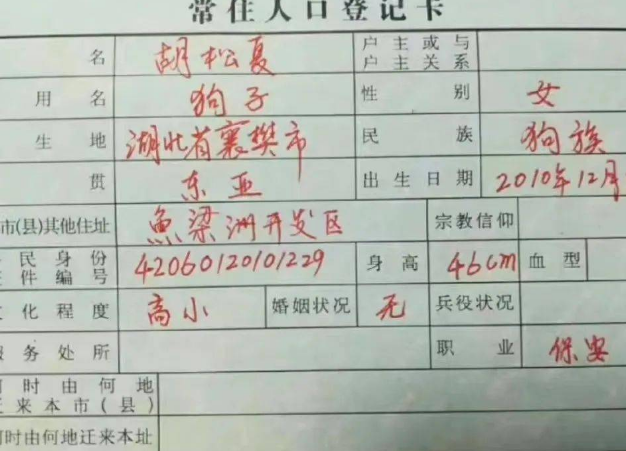 常住人口登记卡
名 胡松夏 户主或与户主关系
用名 狗子 性别 女
生地 湖北省襄樊市 民族 狗族
贯 东亚 出生日期 2010年12月
市(县)其他住址 鱼梁洲开发区 宗教信仰
民身份件编号 42060120101229 身高 46cm 血型
化程度 高小 婚姻状况 无 兵役状况
务处所 职业 保安
时由何地迁来本市(县)
时由何地迁来本址